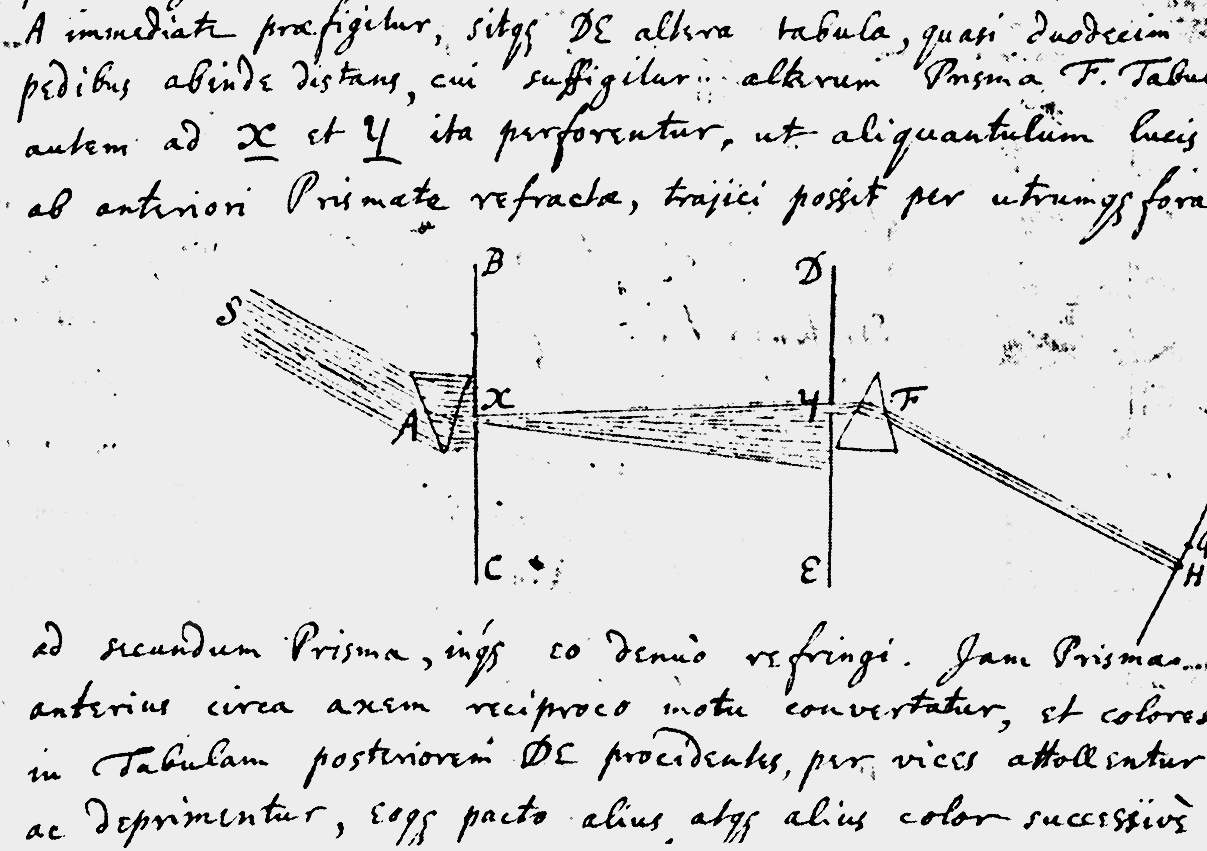 A immediate præfigitur, sitqꝫ DE altera tabula, quasi duodecim
pedibus abinde distans, cui suffigitur alterum Prisma F. Tabu
autem ad X et Y ita perforentur, ut aliquantulum lucis
ab anteriori Prismate refractæ, trajici possit per utrumqꝫ fora
B D
S
X Y F
A
C E
H
ad secundum Prisma, inqꝫ eo denuò refringi. Jam Prisma
anterius circa axem reciproco motu convertatur, et colores
in Tabulam posteriorem DE procidentes, per vices attollentur
ac deprimentur, eoqꝫ pacto alius atqꝫ alius color successivè